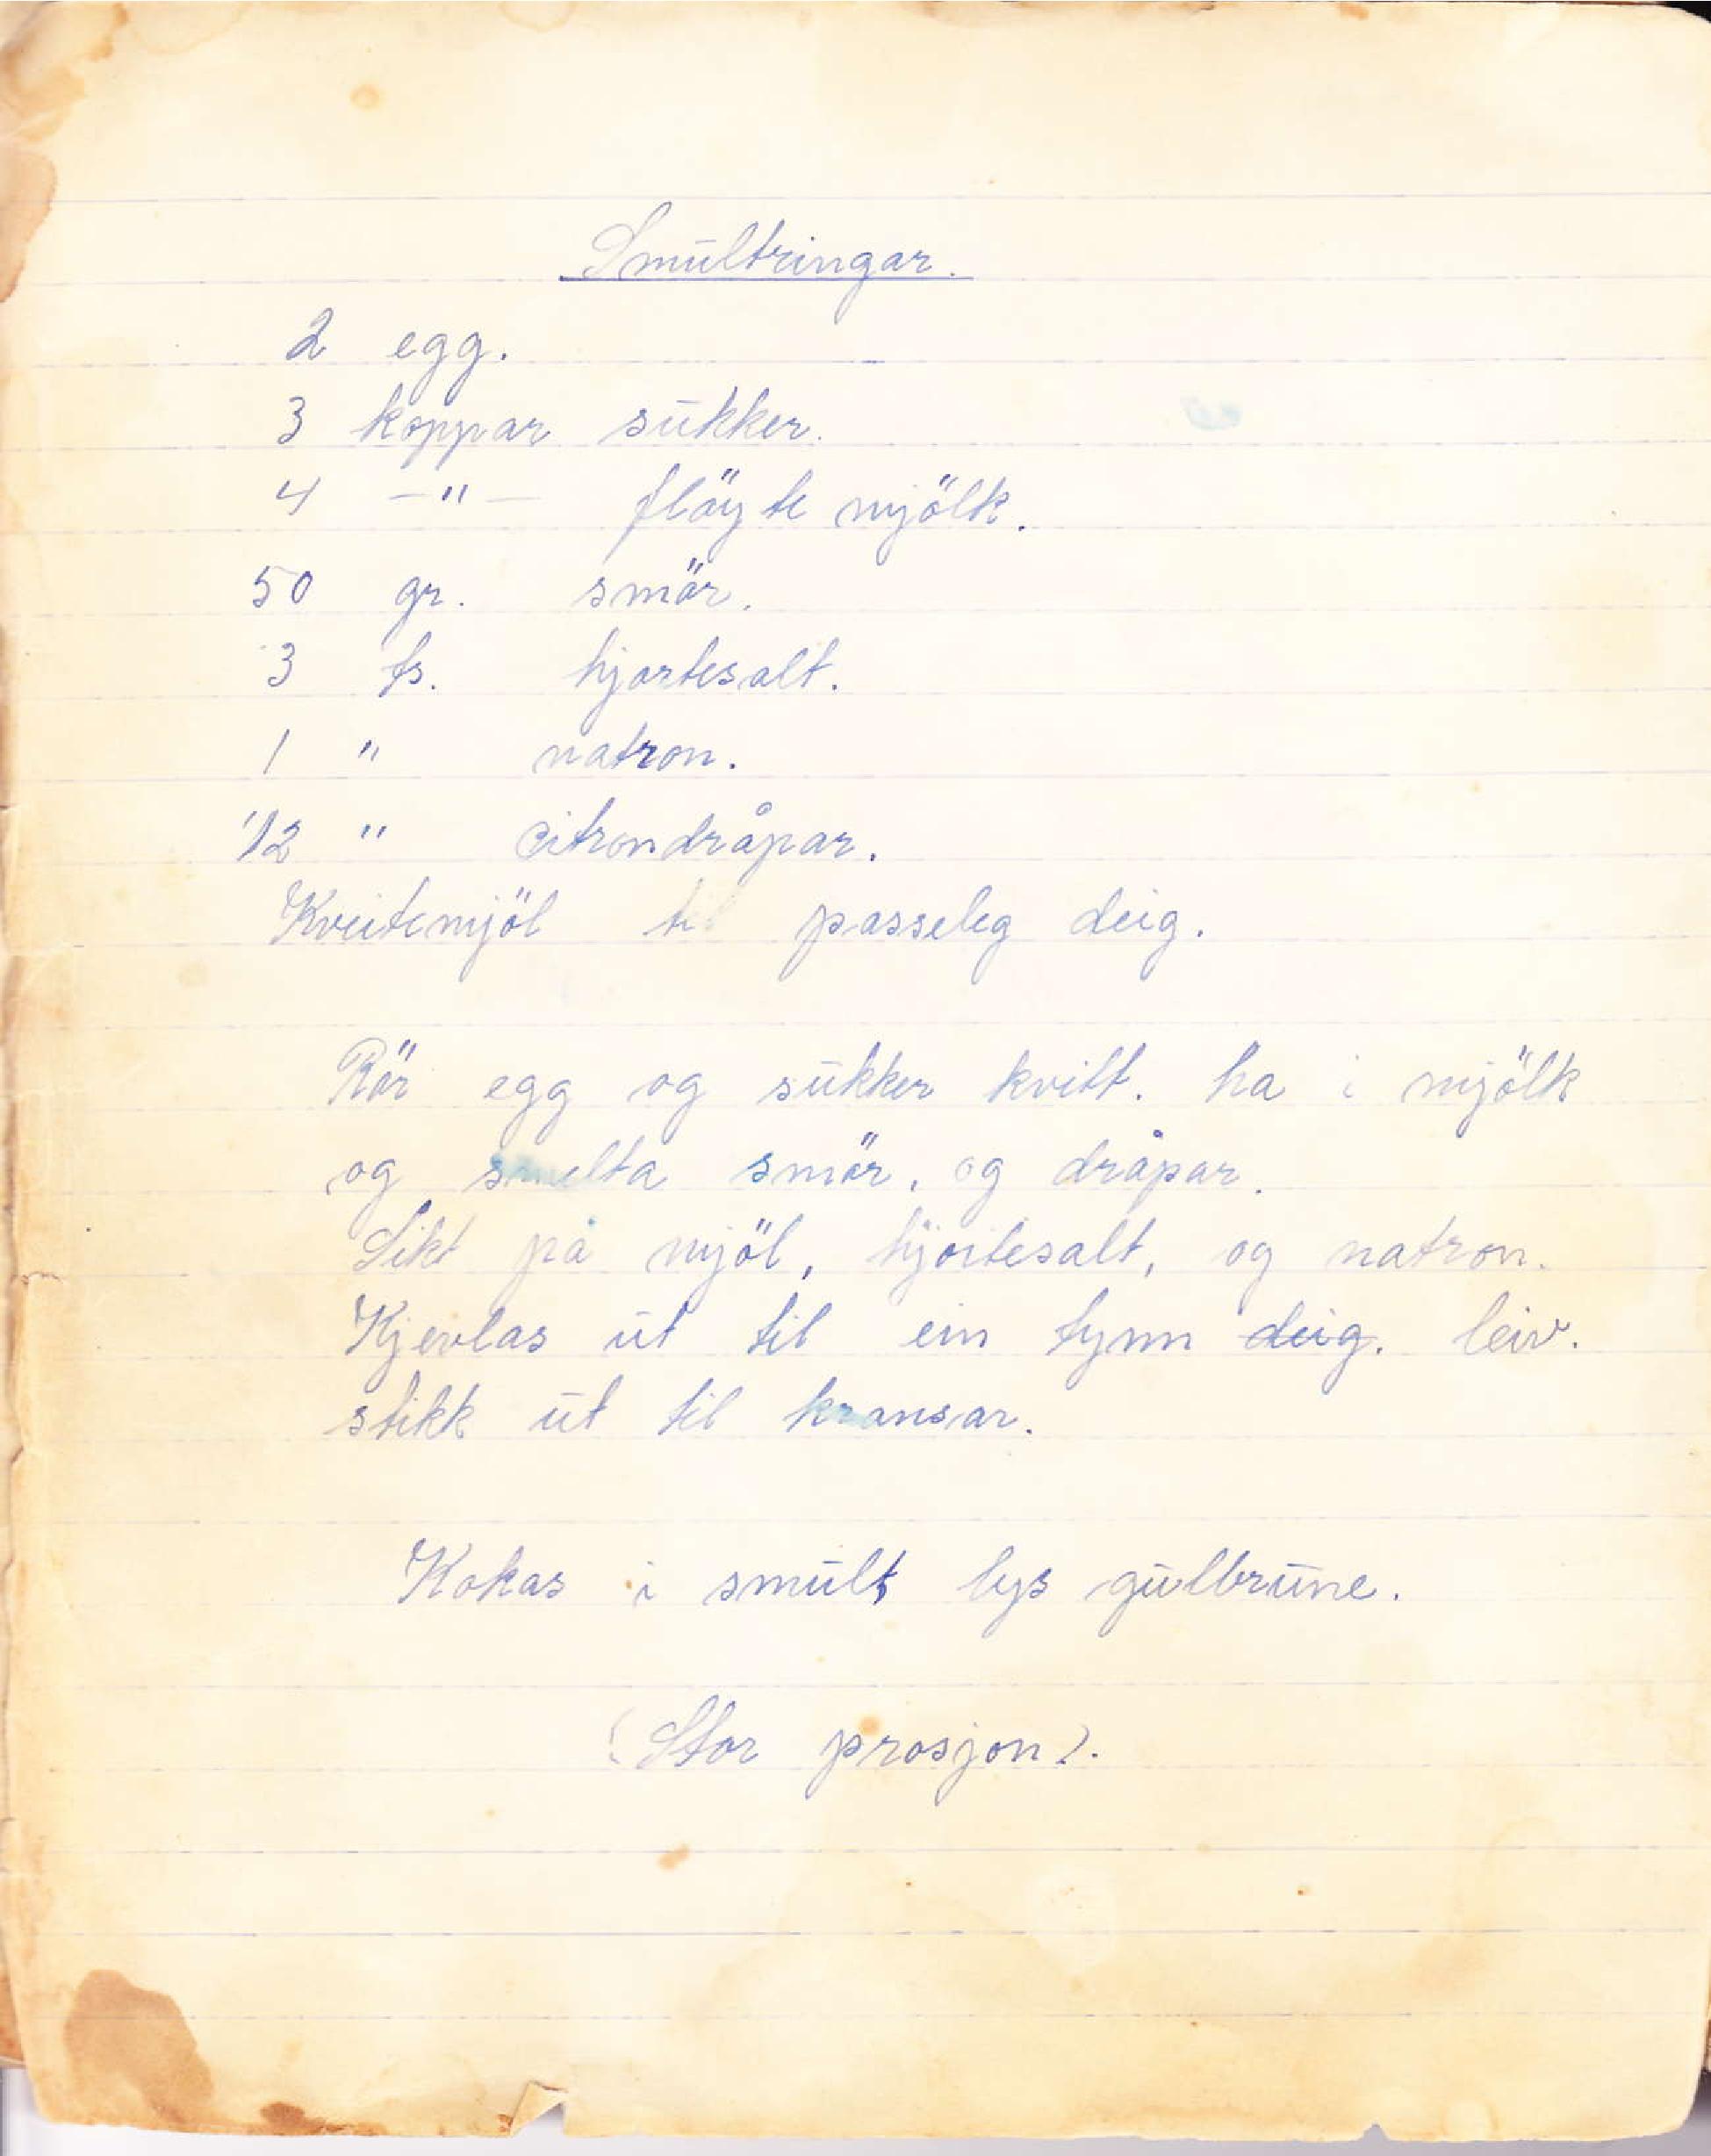 Smultringar.
2 egg.
3 koppar sukker.
4 —"— flöyte mjölk.
50 gr. smör.
3 ts. hjortesalt.
1 " natron.
1/2 " citrondråpar.
Kveitemjöl til passeleg deig.
Rör egg og sukker kvitt. ha i mjölk
og smelta smör, og dråpar.
Sikt på mjöl, hjortesalt, og natron.
Kjevlas ut til ein tynn deig. leiv.
stikk ut til kransar.
Kokas i smult lys gulbrune.
(Stor prosjon).